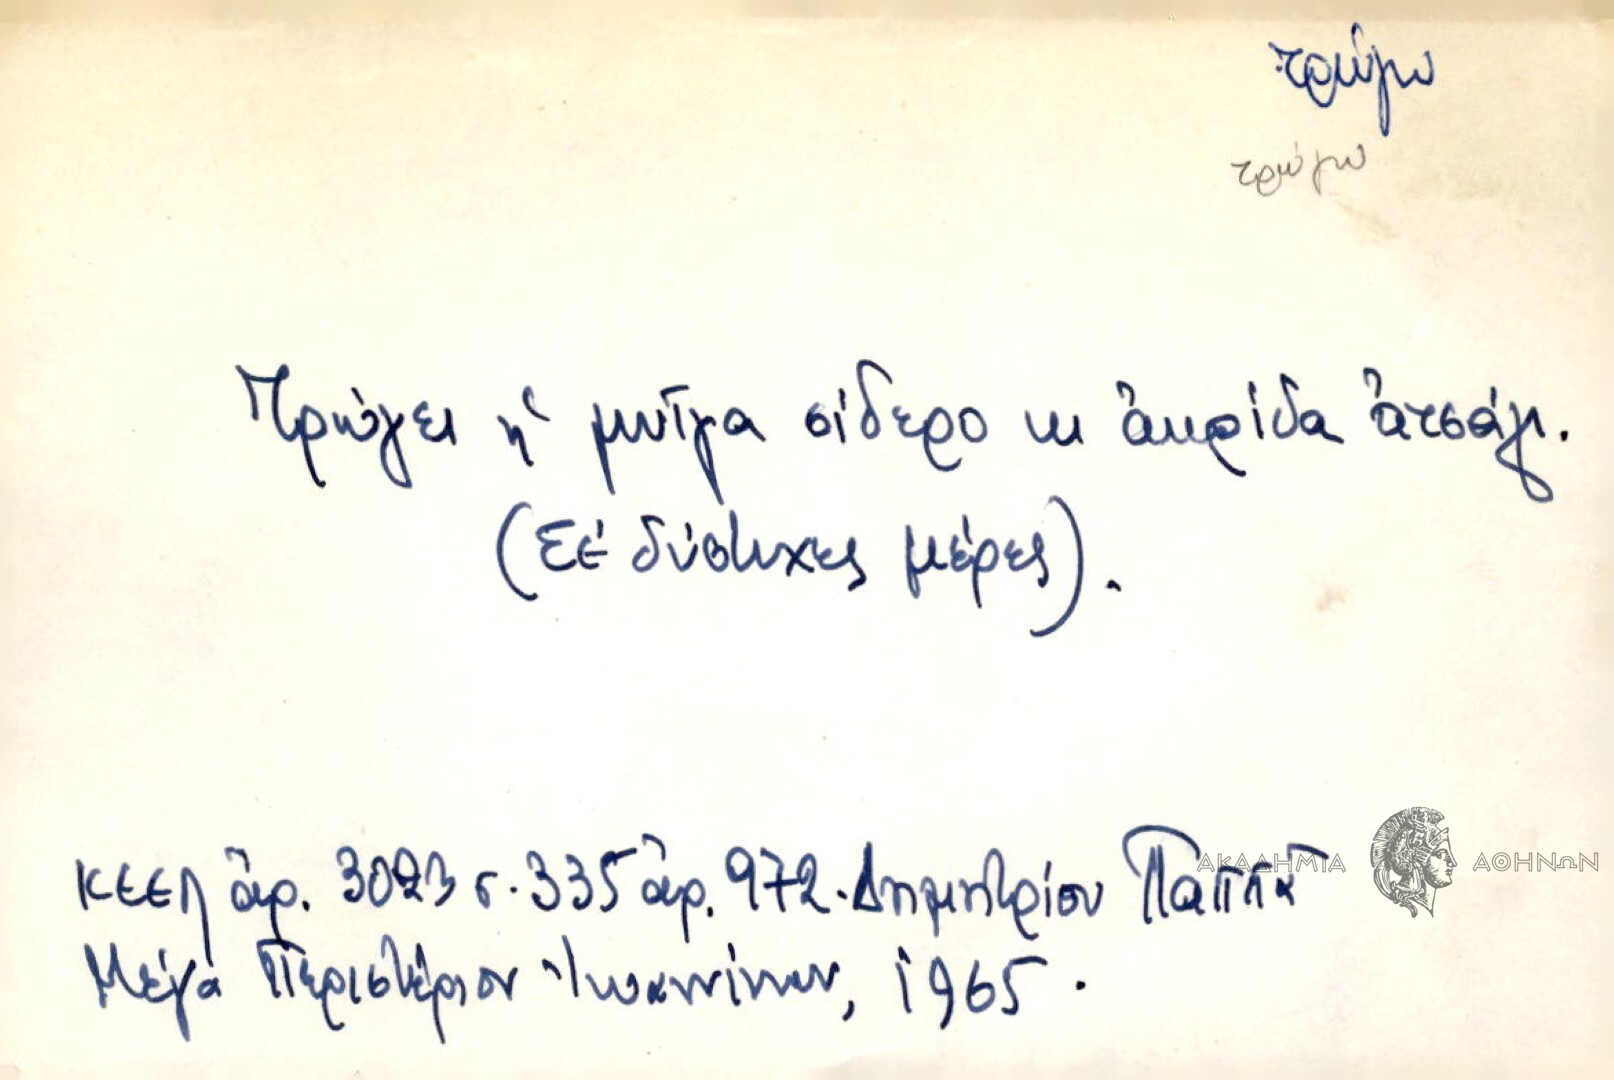 τρώγω
τρώγω
Τρώγει ἡ μυῖγα σίδερο κι ἀκρίδα ἀτσάλι.
(Σὲ δύστυχες μέρες).
ΑΚΑΔΗΜΙΑ ΑΘΗΝΩΝ
ΚΕΕΛ ἀρ. 3023 σ. 335 ἀρ. 972. Δημητρίου Παππᾶ
Μέγα Περιστέριον Ἰωαννίνων, 1965.